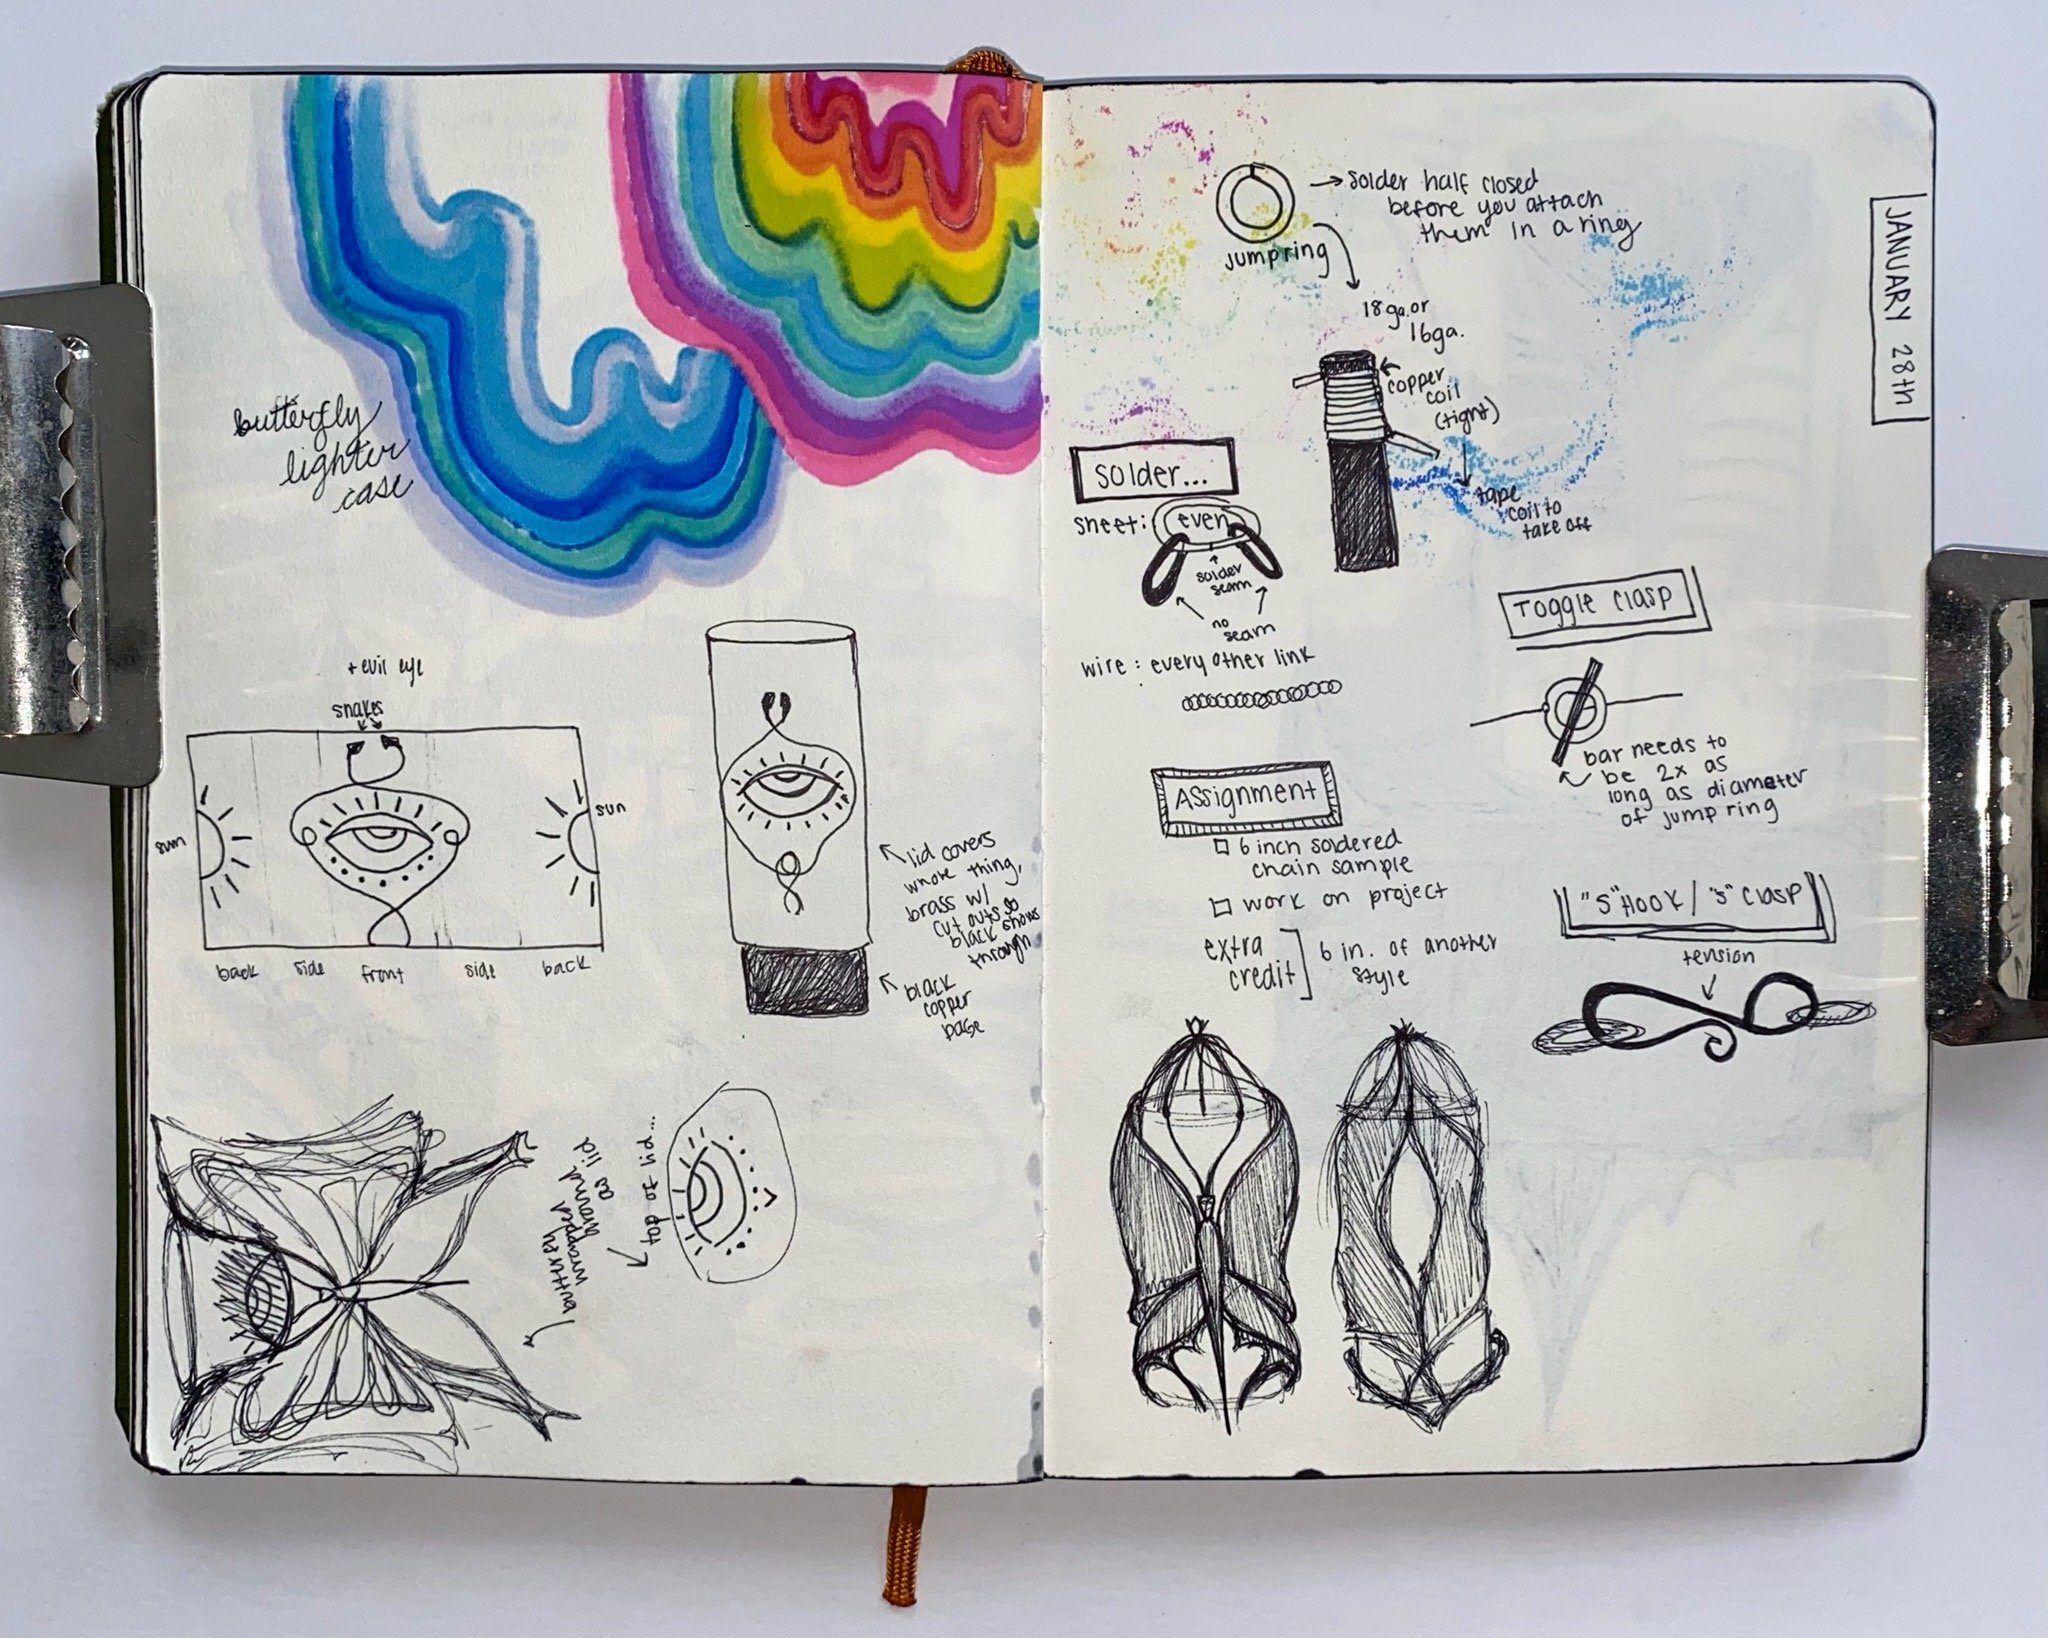 butterfly
lighter
case
+ evil eye
snakes
sun
sun
back side front side back
lid covers
whole thing,
brass w/
cut outs so
black shows
through
black
copper
base
top of lid...
butterfly
wrapped
around
as lid
JANUARY 28th
→ solder half closed
before you attach
them in a ring
jumpring
18ga. or
16ga.
copper
coil
(tight)
tape
coil to
take off
solder...
sheet: even
solder
seam
no
seam
wire: every other link
Toggle clasp
bar needs to
be 2x as
long as diameter
of jump ring
Assignment
6 inch soldered
chain sample
work on project
extra
credit
6 in. of another
style
"S" Hook / "S" clasp
tension